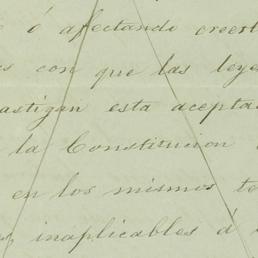 ó afectando creer
con que las leye
astigan esta acepta
la Constitucion
en los mismos te
inaplicables á